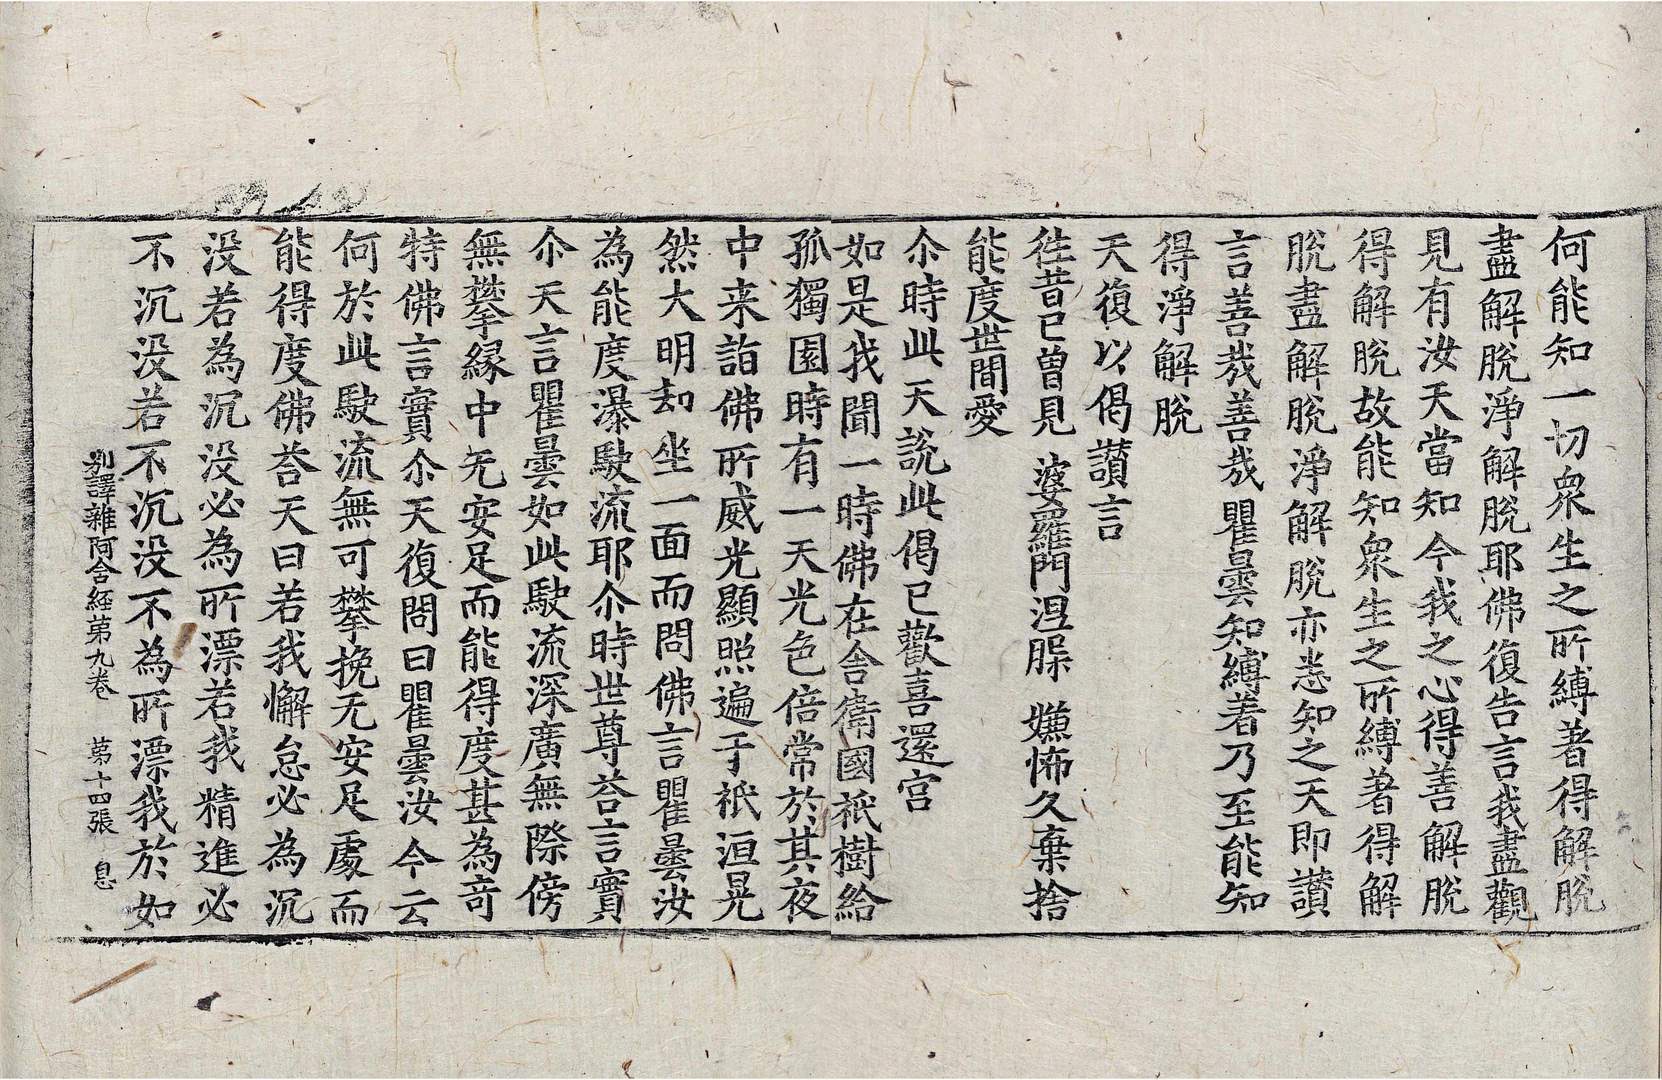 何能知一切衆生之所縛著得解脫
盡解脫淨解脫耶佛復告言我盡觀
見有汝天當知今我之心得善解脫
得解脫故能知衆生之所縛著得解
脫盡解脫淨解脫亦悉知之天即讃
言善㢤善㢤瞿曇知縛着乃至能知
得淨解脫
天復以偈讃言
徃昔已曽見 婆羅門涅槃 嫌怖久棄捨
能度世間愛
尒時此天說此偈已歡喜還宮
如是我聞一時佛在舎衛國祇樹給
孤獨園時有一天光色倍常於其夜
中来詣佛所威光顯照遍于祇洹晃
然大明却坐一面而問佛言瞿曇汝
為能度瀑駛流耶尒時世尊荅言實
尒天言瞿曇如此駛流深廣無際傍
無攀縁中无安足而能得度甚為竒
特佛言實尒天復問曰瞿曇汝今云
何於此駛流無可攀挽无安足處而
能得度佛荅天曰若我懈怠必為沉
没若為沉没必為所漂若我精進必
不沉没若不沉没不為所漂我於如
別譯雜阿含経第九卷 第十四張 息